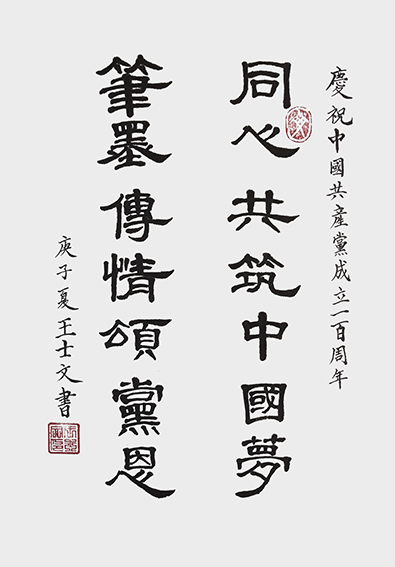 慶祝中國共產黨成立一百周年
同心共筑中國夢
筆墨傳情頌黨恩
庚子夏王士文書